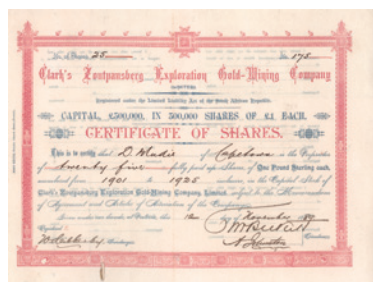 No. of Shares 25 No. 175
Clark's Zoutpansberg Exploration Gold-Mining Company
LIMITED.
Registered under the Limited Liability Act of the South African Republic.
CAPITAL, £500,000, IN 500,000 SHARES OF £1 EACH.
CERTIFICATE OF SHARES.
This is to certify that D. Mudie of Capetown is the Proprietor
of twenty five fully paid up Shares of One Pound Sterling each,
numbered from 1901 to 1925 inclusive, in the Capital Stock of
Clark's Zoutpansberg Exploration Gold-Mining Company, Limited, subject to the Memorandum
of Agreement and Articles of Association of the Company.
Given under our hands, at Pretoria, this 12 day of November 1889
Secretary.